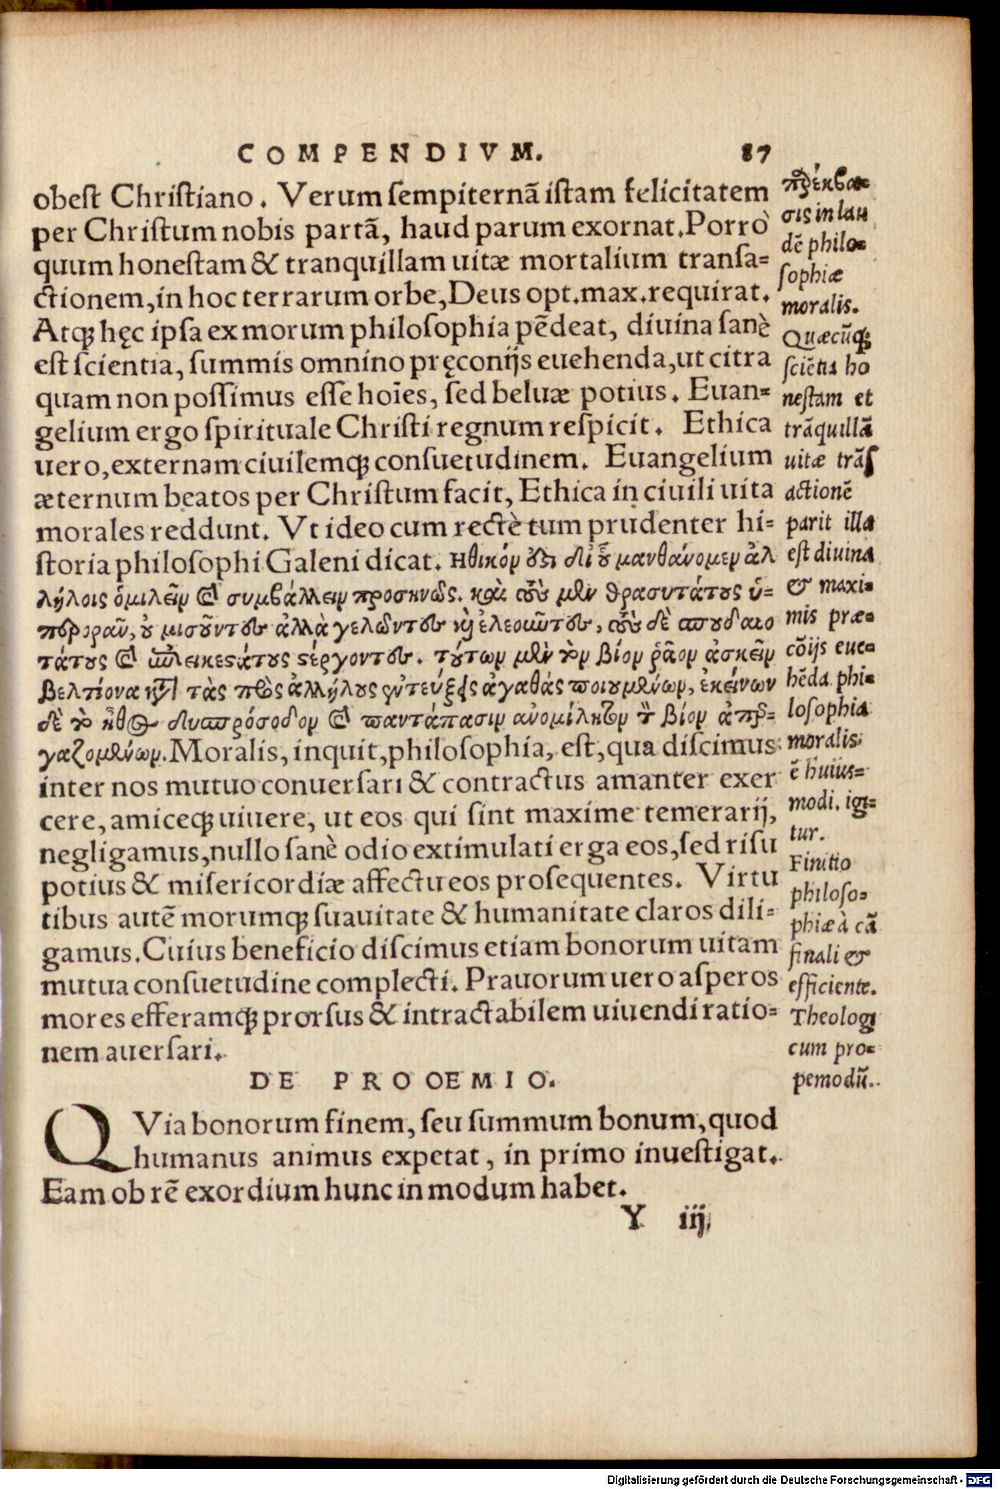 COMPENDIVM. 87
obest Christiano. Verum sempiternã istam felicitatem
per Christum nobis partã, haud parum exornat. Porrò
quum honestam & tranquillam uitæ mortalium transa=
ctionem, in hoc terrarum orbe, Deus opt. max. requirat.
Atq; hęc ipsa ex morum philosophia pẽdeat, diuina sanè
est scientia, summis omnino pręconijs euehenda, ut citra
quam non possimus esse hoĩes, sed beluæ potius. Euan=
gelium ergo spirituale Christi regnum respicit. Ethica
uero, externam ciuilemq; consuetudinem. Euangelium
æternum beatos per Christum facit, Ethica in ciuili uita
morales reddunt. Vt ideo cum rectè tum prudenter hi=
storia philosophi Galeni dicat. Ηθικόν ἐστι δι οὗ μανθάνομεν ἀλ
λήλοις ὁμιλεῖν καὶ συμβάλλειν προσηνῶς. καὶ τοὺς μὲν θρασυτάτους ὑ=
περορᾶν, οὐ μισοῦντας ἀλλὰ γελῶντας καὶ ἐλεοῦντας, τοὺς δὲ σπουδαιο
τάτους καὶ ἐπιεικεστάτους στέργοντας. τούτων μὲν τὸν βίον ῥᾷον ἀσκεῖν
βελτίονα καὶ τὰς πρὸς ἀλλήλους ἐντεύξεις ἀγαθὰς ποιουμένων, ἐκείνων
δὲ τὸ ἦθος δυσπρόσοδον καὶ παντάπασιν ἀνομίλητον τὸν βίον ἀπερ=
γαζομένων. Moralis, inquit, philosophia, est, qua discimus
inter nos mutuo conuersari & contractus amanter exer
cere, amiceq; uiuere, ut eos qui sint maxime temerarij,
negligamus, nullo sanè odio extimulati erga eos, sed risu
potius & misericordiæ affectu eos prosequentes. Virtu
tibus autẽ morumq; suauitate & humanitate claros dili=
gamus. Cuius beneficio discimus etiam bonorum uitam
mutua consuetudine complecti. Prauorum uero asperos
mores efferamq; prorsus & intractabilem uiuendi ratio=
nem auersari.
DE PROOEMIO.
QVia bonorum finem, seu summum bonum, quod
humanus animus expetat, in primo inuestigat.
Eam ob rẽ exordium hunc in modum habet.
Y iij
παρέκβα=
σις in lau
dẽ philo=
sophiæ
moralis.
Quæcũq;
sciẽtia ho
nestam et
trãquillã
uitæ trãs
actionẽ
parit illa
est diuina
& maxi=
mis præ=
cõijs eue=
hẽda. phi=
losophia
moralis
ẽ huius=
modi. igi=
tur.
Finitio
philoso=
phiæ à cã
finali &
efficiente.
Theologi
cum pro=
pemodũ.
Digitalisierung gefördert durch die Deutsche Forschungsgemeinschaft - DFG